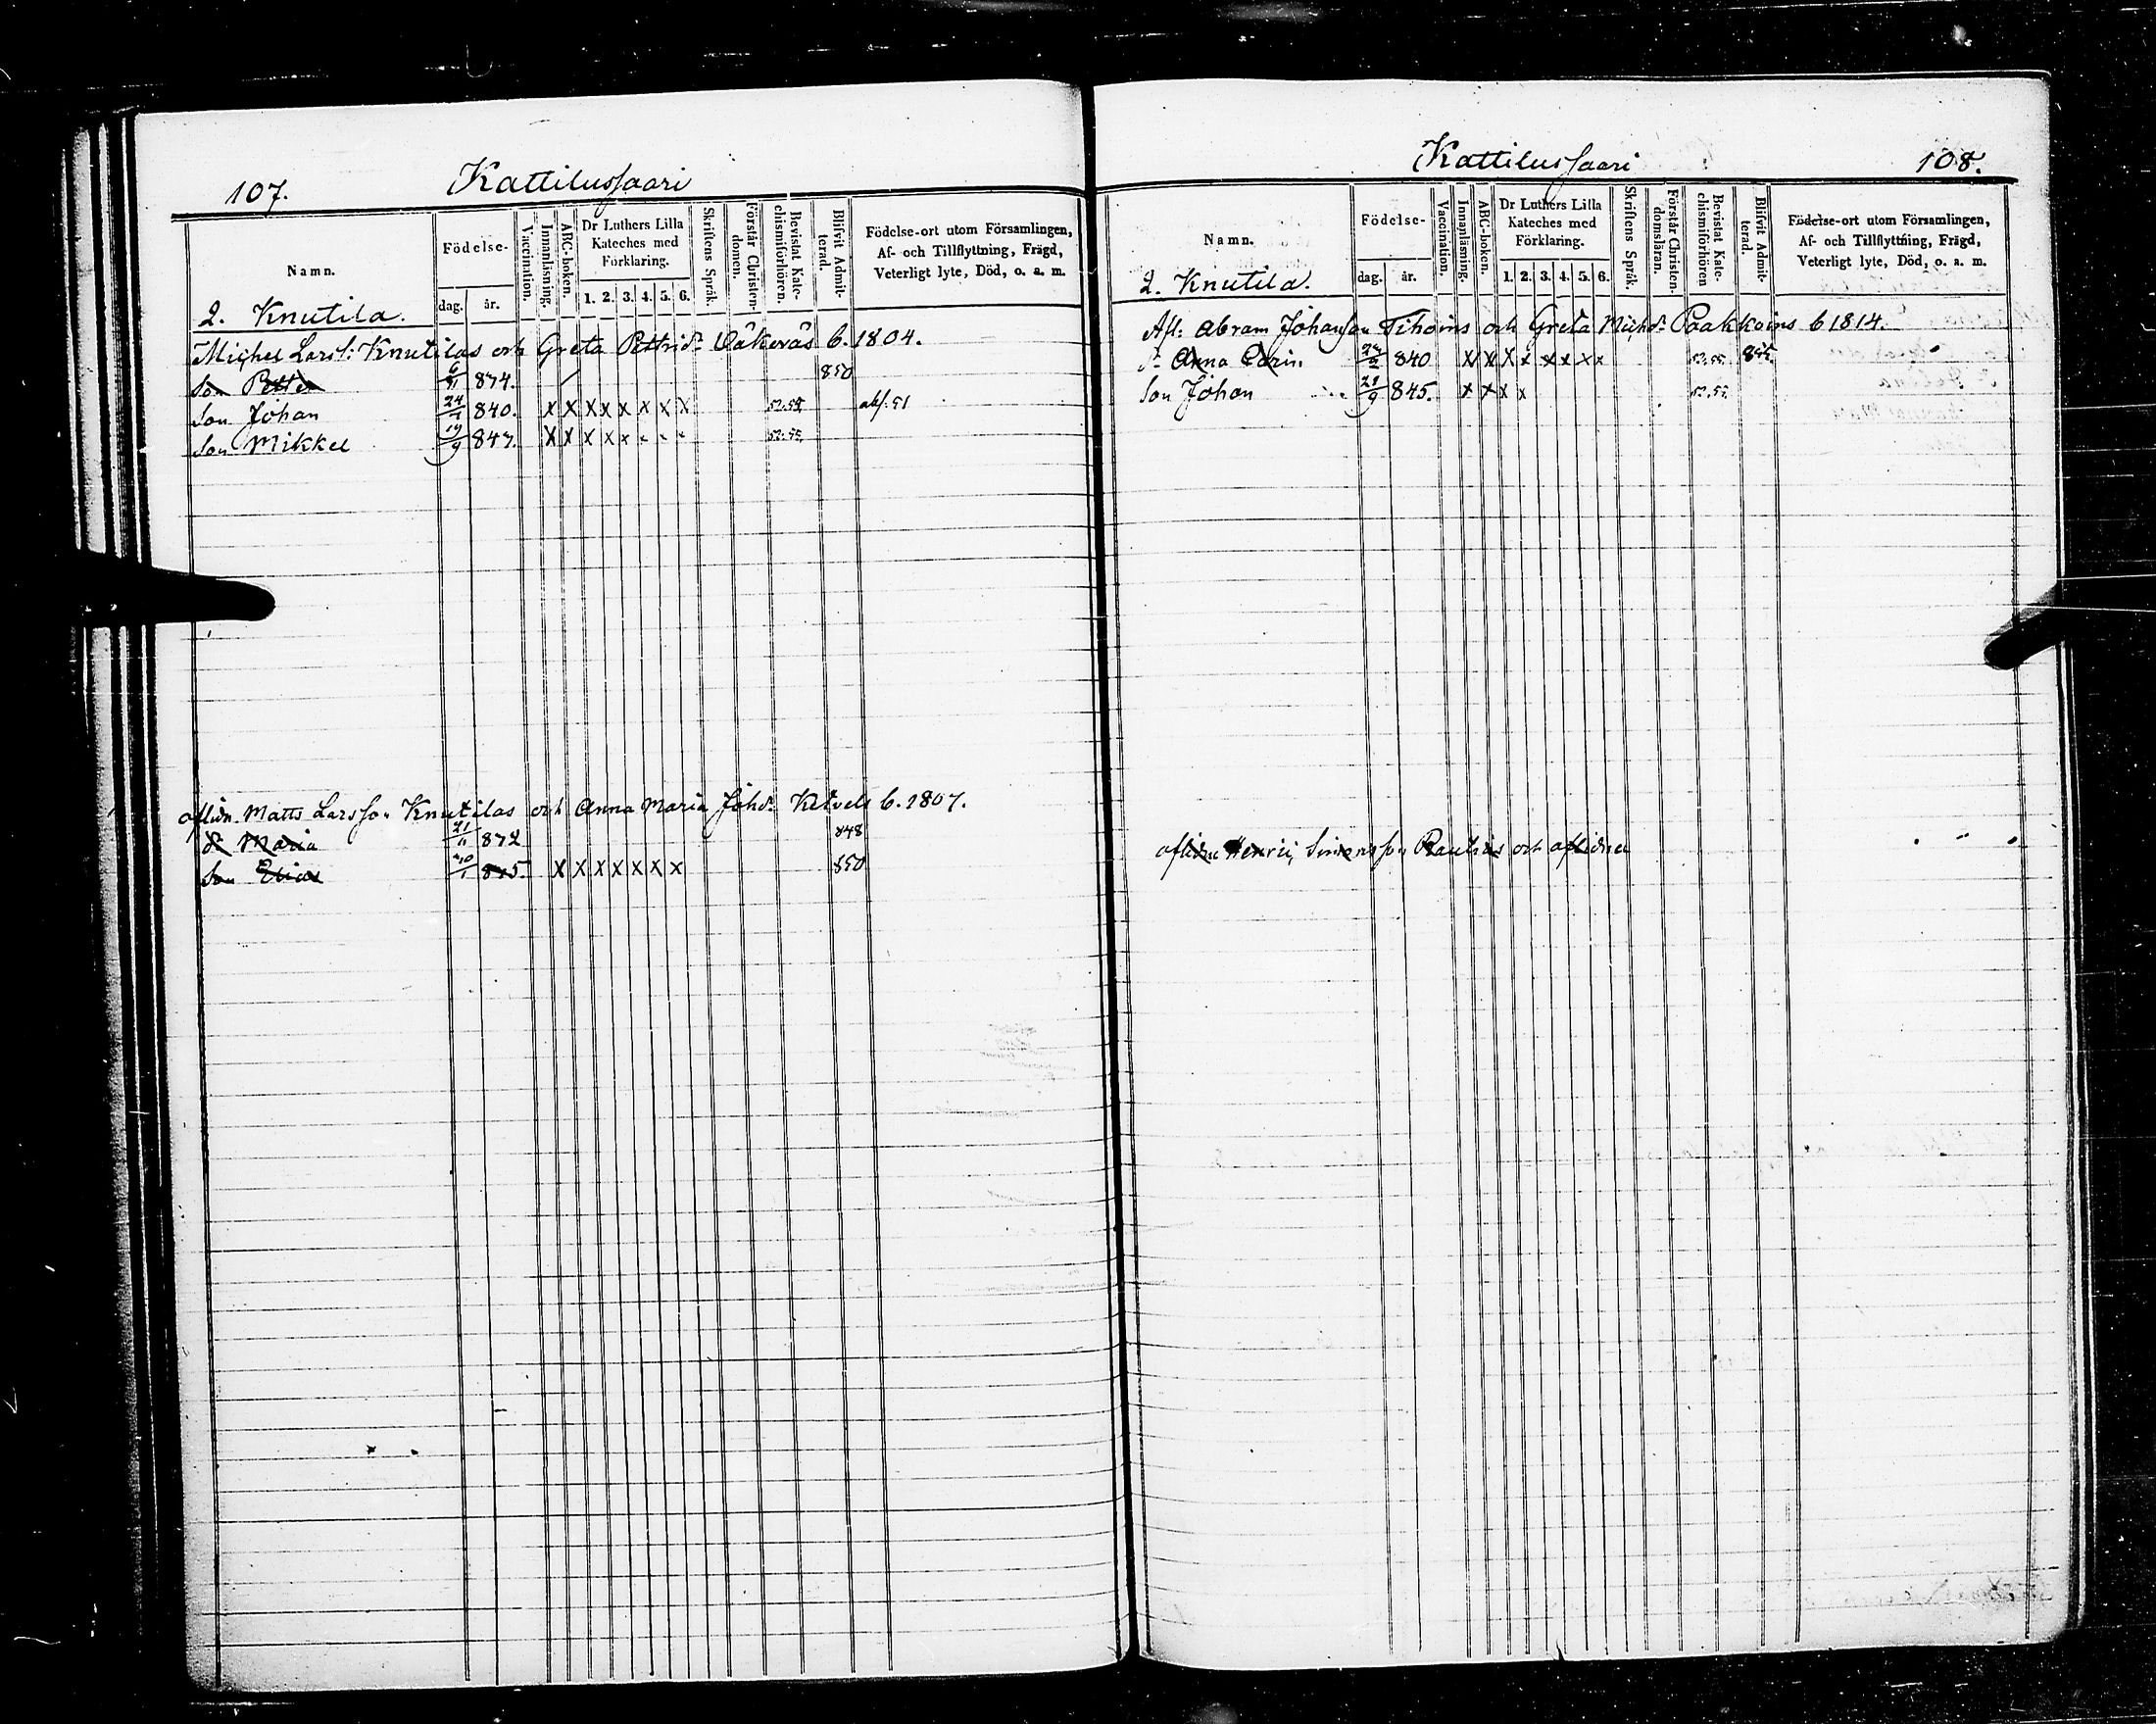 107. Kattilussaari
Namn. Födelse- dag. år. Vaccination. Innanläsning. ABC-boken. Dr Luthers Lilla Kateches med Förklaring. 1. 2. 3. 4. 5. 6. Skriftens Språk. Förstår Christendomen. Bevistat Katechismiförhören. Blifvit Admitterad. Födelse-ort utom Församlingen, Af- och Tillflyttning, Frägd, Veterligt lyte, Död, o. a. m.
2. Knutila.
Michel Larss: Knutilas och Greta Pettrid: b. 1804.
Son Petter 6/11 834. 850
Son Johan 24/ 840. X X X X X X X X
Son Mikkel 19/9 847. X X X X x
aflidn. Matts Larsson Knutilas och Anna Maria Johd: b. 1807.
d: Maria 21/11 832 848
Son Elias X X X X X X X 850
Kattilussaari 108.
Namn. Födelse- dag. år. Vaccination. Innanläsning. ABC-boken. Dr Luthers Lilla Kateches med Förklaring. 1. 2. 3. 4. 5. 6. Skriftens Språk. Förstår Christendomsläran. Bevistat Katechismiförhören Blifvit Admitterad. Födelse-ort utom Församlingen, Af- och Tillflyttning, Frägd, Veterligt lyte, Död, o. a. m.
2. Knutila.
Afl: Abram Johansson Tihoins och Greta Michd: Paakkoins b 1814.
d: Anna Carin 840 X X X x x x x x
Son Johan 845. x x x x
aflidne Henric Simonsson Paulins och aflidna